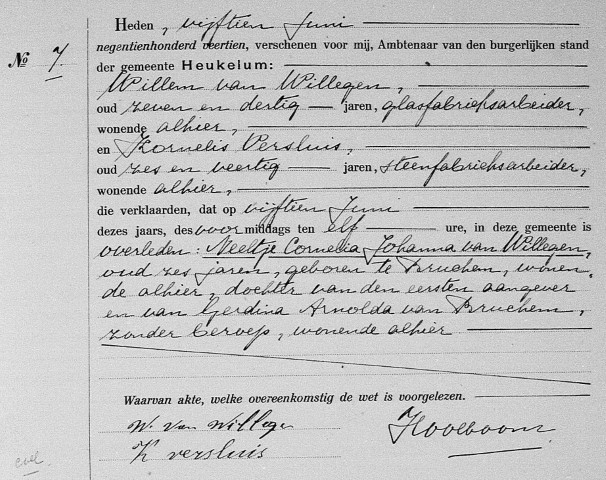 Heden, vijftien Juni
negentienhonderd veertien, verschenen voor mij, Ambtenaar van den burgerlijken stand
No 7
der gemeente Heukelum:
Willem van Willegen,
oud zeven en dertig jaren, glasfabrieksarbeider,
wonende alhier,
en Kornelis Versluis,
oud zes en veertig jaren, steenfabrieksarbeider,
wonende alhier,
die verklaarden, dat op vijftien Juni
dezes jaars, des voormiddags ten elf ure, in deze gemeente is
overleden: Neeltje Cornelia Johanna van Willegen,
oud zes jaren, geboren te Bruchem, wonen-
de alhier, dochter van den eersten aangever
en van Gerdina Arnolda van Bruchem,
zonder beroep, wonende alhier
Waarvan akte, welke overeenkomstig de wet is voorgelezen.
W. van Willegen
K versluis
Hooboom